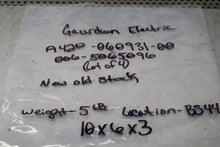 Gaurdian Electric
A420-060931-00
006-5065096
(Lot of 4)
New old stock
Weight-5 LB Location-BS44
10x6x3